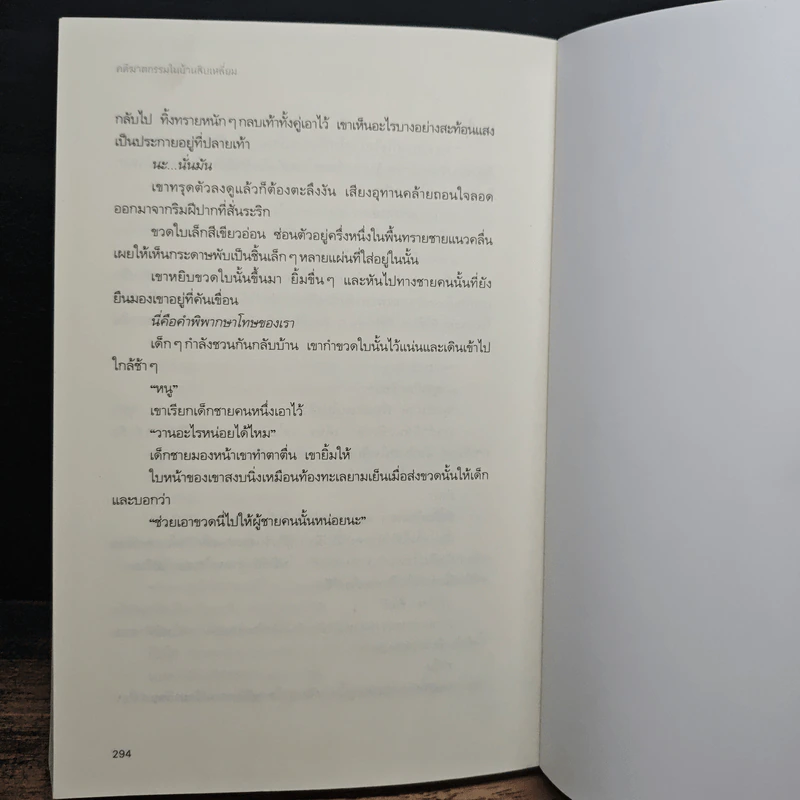 คดีฆาตกรรมในบ้านสิบเหลี่ยม
กลับไป ทิ้งทรายหนักๆ กลบเท้าทั้งคู่เอาไว้ เขาเห็นอะไรบางอย่างสะท้อนแสง
เป็นประกายอยู่ที่ปลายเท้า
นะ...นั่นมัน
เขาทรุดตัวลงดูแล้วก็ต้องตะลึงงัน เสียงอุทานคล้ายถอนใจลอด
ออกมาจากริมฝีปากที่สั่นระริก
ขวดใบเล็กสีเขียวอ่อน ซ่อนตัวอยู่ครึ่งหนึ่งในพื้นทรายชายแนวคลื่น
เผยให้เห็นกระดาษพับเป็นชิ้นเล็กๆ หลายแผ่นที่ใส่อยู่ในนั้น
เขาหยิบขวดใบนั้นขึ้นมา ยิ้มขื่นๆ และหันไปทางชายคนนั้นที่ยัง
ยืนมองเขาอยู่ที่คันเขื่อน
นี่คือคำพิพากษาโทษของเรา
เด็กๆ กำลังชวนกันกลับบ้าน เขากำขวดใบนั้นไว้แน่นและเดินเข้าไป
ใกล้ช้าๆ
“หนู”
เขาเรียกเด็กชายคนหนึ่งเอาไว้
“วานอะไรหน่อยได้ไหม”
เด็กชายมองหน้าเขาทำตาตื่น เขายิ้มให้
ใบหน้าของเขาสงบนิ่งเหมือนท้องทะเลยามเย็นเมื่อส่งขวดนั้นให้เด็ก
และบอกว่า
“ช่วยเอาขวดนี่ไปให้ผู้ชายคนนั้นหน่อยนะ”
294